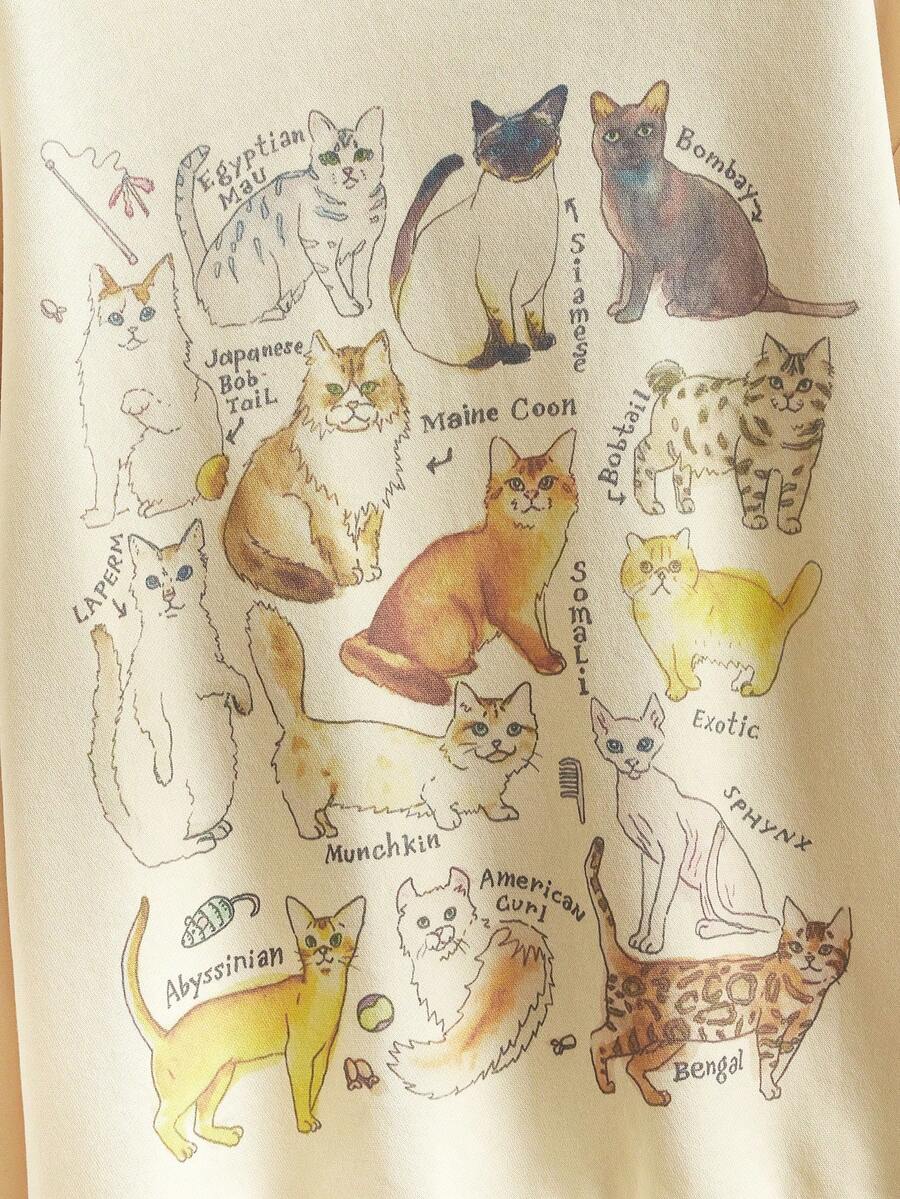 Egyptian
Mau
Siamese
Bombay
Japanese
Bob-
Tail
Maine Coon
Bobtail
LAPERM
SomaLi
Exotic
Munchkin
SPHYNX
American
Curl
Abyssinian
Bengal